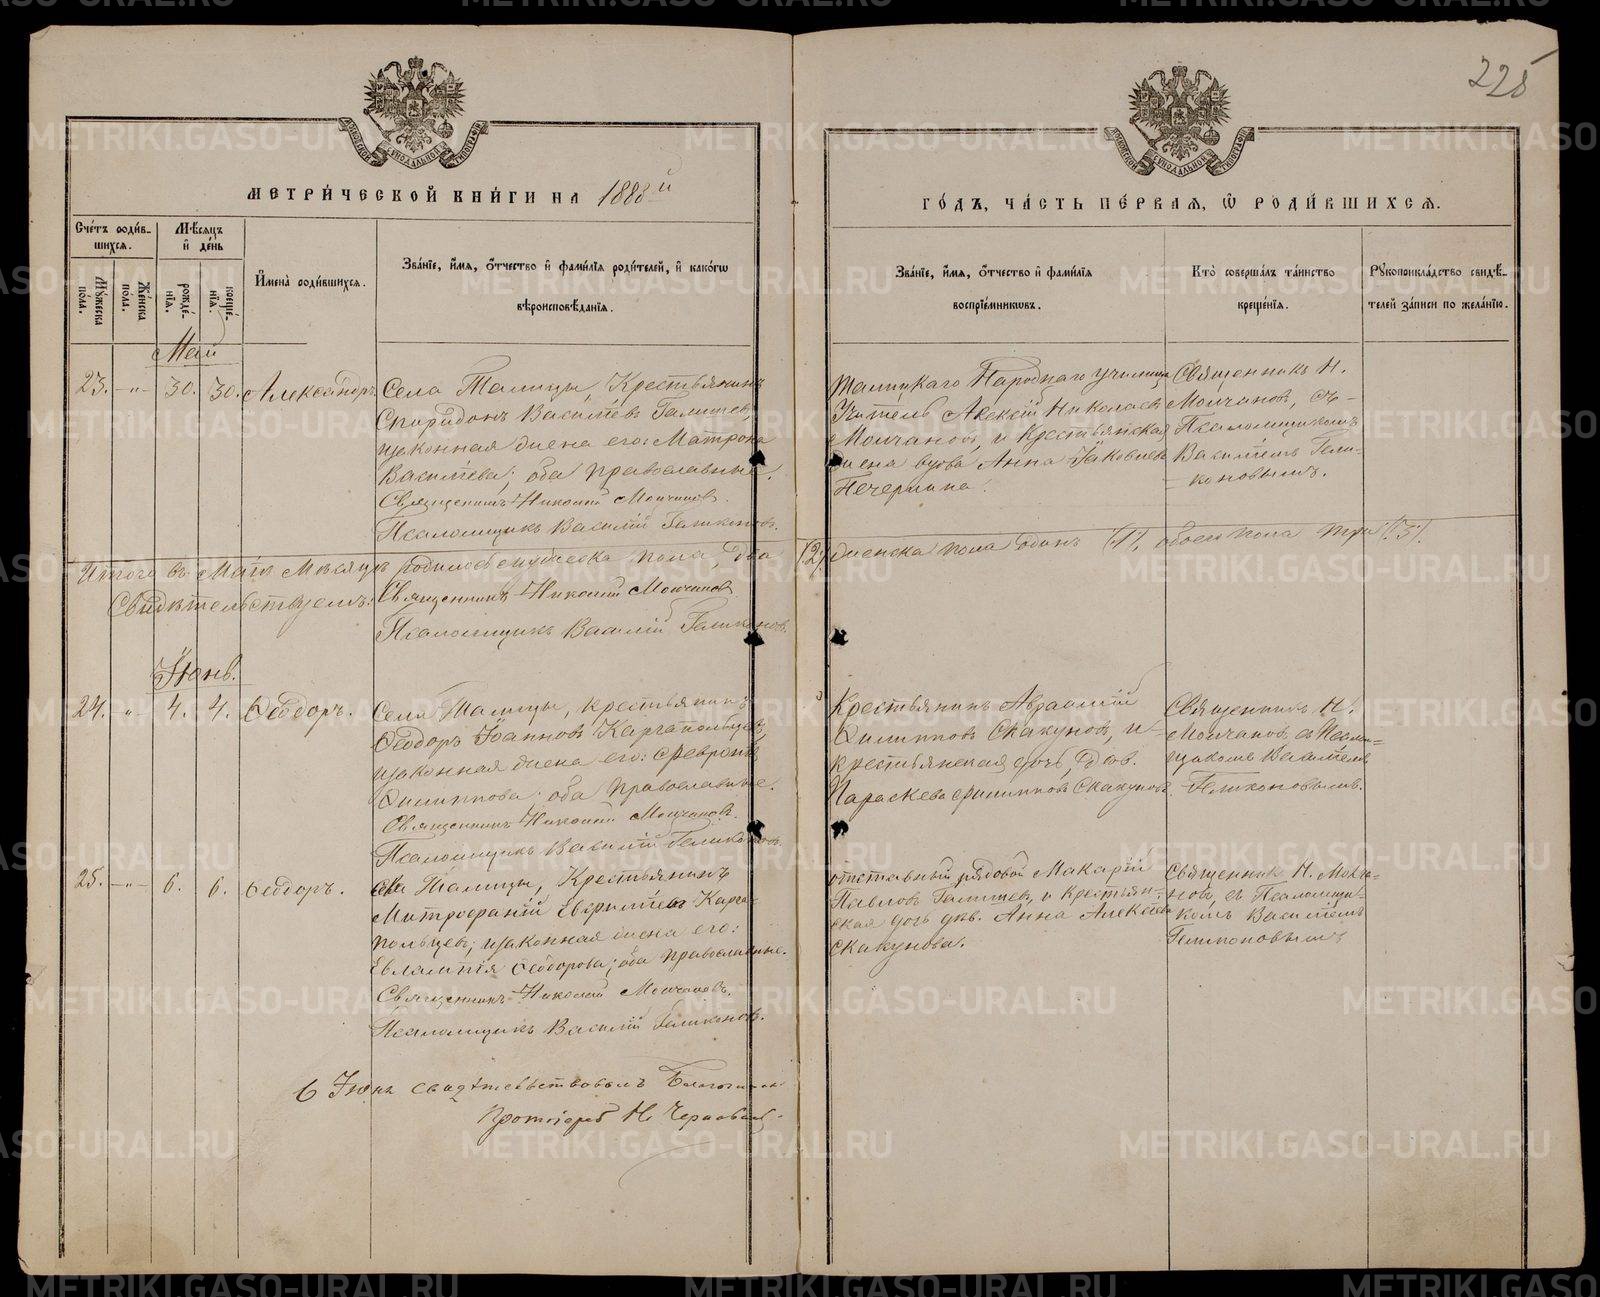 225
МОСКОВСКОЙ СИНОДАЛЬНОЙ ТИПОГРАФІИ
МОСКОВСКОЙ СИНОДАЛЬНОЙ ТИПОГРАФІИ
МЕТРИ́ЧЕСКОЙ КНИ́ГИ НА 1888й
ГО́ДЪ, ЧА́СТЬ ПЕ́РВАЯ, Ѡ РОДИ́ВШИХСЯ.
Сче́тъ роди́в-
шихся.
Му́жеска пола.
Же́нска пола.
Мѣ́сяцъ
и де́нь
рожде́-
нїя.
креще́-
нїя.
И҆мена̀ роди́вшихся.
Зва́нїе, и҆́мя, ѻ҆́тчество и҆ фами́лїя роди́телей, и҆ како́гѡ
вѣроисповѣ́данїя.
Зва́нїе, и҆́мя, ѻ҆́тчество и҆ фами́лїя
воспрїе́мникѡвъ.
Кто̀ соверша́лъ та́инство
креще́нїя.
Рꙋкоприкла́дство свидѣ́-
телей за́писи по жела́нїю.
Май
23. -„- 30. 30. Александръ.
Села Талицы, Крестьянинъ
Спиридонъ Васильевъ Галишев,
законная жена его: Матрона
Васильева; оба православные.
Священникъ Николай Молчановъ.
Псаломщикъ Василій Геликоновъ.
Талицкаго Народнаго училища
Учитель Алексѣй Николаевъ
Молчановъ, и крестьянская
жена вдова Анна Іаковлева
Печеркина.
Священникъ Н.
Молчановъ, съ
Псаломщикомъ
Василіемъ Гели-
коновымъ.
Итого въ Маѣ Мѣсяцѣ родилось мужеска пола, два (2) женска пола одинъ (1), обоего пола три (3).
Свидѣтельствуемъ: Священникъ Николай Молчановъ
Псаломщикъ Василій Геликоновъ.
Іюнь.
24. -„- 4. 4. Ѳеодоръ.
Села Талицы, крестьянинъ
Ѳеодоръ Іоанновъ Каргапольцевъ,
законная жена его: Февронія
Филиппова; оба православные.
Священникъ Николай Молчановъ.
Псаломщикъ Василій Геликоновъ.
Крестьянинъ Авраамій
Филипповъ Скакуновъ, и
крестьянская дочь, дѣв.
Параскева Филиппова Скакунова.
Священникъ Н.
Молчановъ, съ Псалом-
щикомъ Василіемъ
Геликоновымъ.
25. -„- 6. 6. Ѳеодоръ.
Села Талицы, Крестьянинъ
Митрофаній Евфиміевъ Карга-
польцевъ; законная жена его:
Евлампія Ѳеодорова; оба православные.
Священникъ Николай Молчановъ.
Псаломщикъ Василій Геликоновъ.
отставный рядовой Макарій
Павловъ Галишевъ, и крестьян-
ская дочь дѣв. Анна Алексѣева
Скакунова.
Священникъ Н. Молча-
новъ, съ Псаломщи-
комъ Василіемъ
Геликоновымъ
6 Іюня свидѣтельствовалъ Благочинный
Протоіерей Н.
METRIKI.GASO-URAL.RU